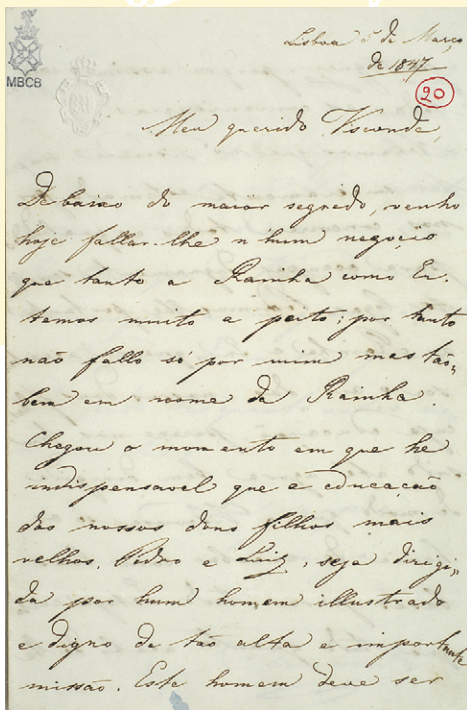 MBCB
Lisboa 5 de Março
de 1847
20
Meu querido Visconde,
Debaixo do maior segredo, venho
hoje fallar-lhe n'hum negoçio
que tanto a Rainha como Eu
temos muito a peito; por tanto
não fallo só por mim mas tão,,
bem em nome da Rainha.
Chegou o momento em que he
indispensavel que a educação
dos nossos dous filhos mais
velhos, Pedro e Luiz, seja dirigi,,
da por hum homem illustrado
e digno de tão alta e importante
missão. Este homem deve ser